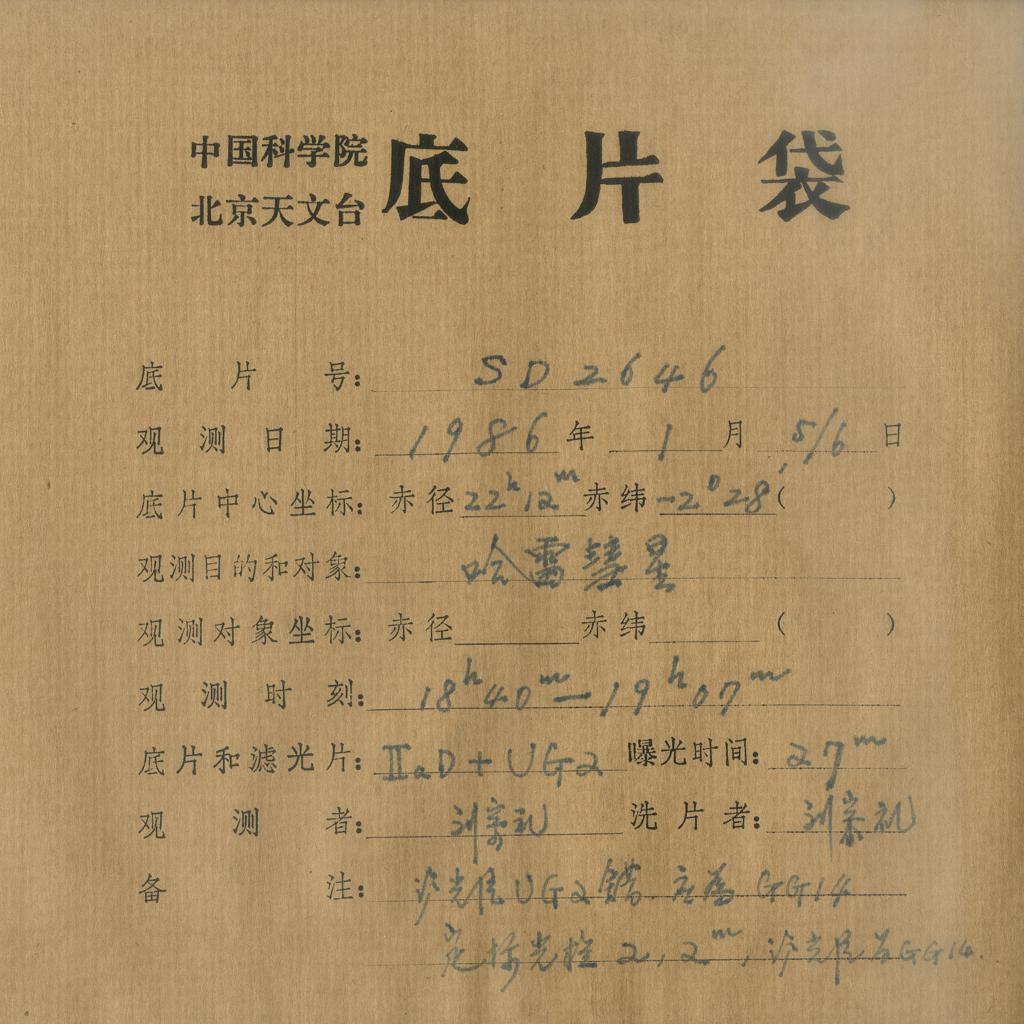 中国科学院
北京天文台 底片袋
底片号: SD2646
观测日期: 1986年1月5/6日
底片中心坐标: 赤径22ʰ12ᵐ赤纬-2°28′( )
观测目的和对象: 哈雷彗星
观测对象坐标: 赤径 赤纬 ( )
观测时刻: 18ʰ40ᵐ—19ʰ07ᵐ
底片和滤光片: ⅡaD+UG2 曝光时间: 27ᵐ
观测者: 刘宗礼 洗片者: 刘宗礼
备注: 滤光片UG2错.应为GG14
定标光 2,2ᵐ,滤光片为GG14.